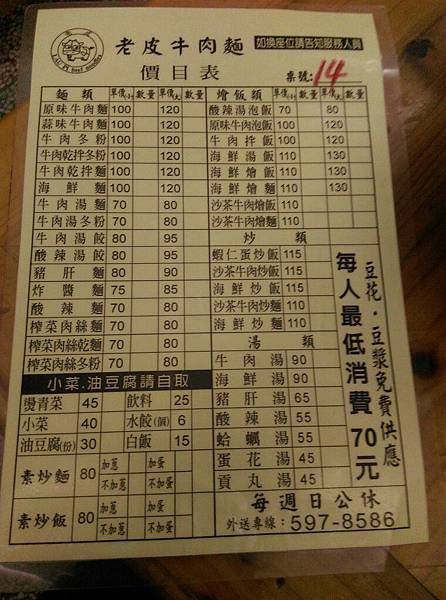 老皮
LAU PI beef noodles
老皮牛肉麵
如換座位請告知服務人員
價目表
桌號:14
麵類 單價(小) 數量 單價(大) 數量
原味牛肉麵 100 120
蒜味牛肉麵 100 120
牛肉冬粉 100 120
牛肉乾拌冬粉 100 120
牛肉乾拌麵 100 120
海鮮麵 100 120
牛肉湯麵 70 80
牛肉湯冬粉 70 80
牛肉湯餃 80 95
酸辣湯餃 80 95
豬肝麵 80 90
炸醬麵 75 85
酸辣麵 70 80
榨菜肉絲麵 70 80
榨菜肉絲乾麵 70 80
榨菜肉絲冬粉 70 80
小菜.油豆腐請自取
燙青菜 45 飲料 25
小菜 40 水餃(個) 6
油豆腐(份) 30 白飯 15
素炒麵 80 加蔥 加蛋
不加蔥 不加蛋
素炒飯 80 加蔥 加蛋
不加蔥 不加蛋
燴飯類 單價(小) 數量 單價(大) 數量
酸辣湯泡飯 70 80
原味牛肉泡飯 100 120
牛肉拌飯 100 120
海鮮湯飯 110 130
海鮮燴飯 110 130
海鮮燴麵 110 130
沙茶牛肉燴飯 110
沙茶牛肉燴麵 110
炒類
蝦仁蛋炒飯 115
沙茶牛肉炒飯 115
海鮮炒飯 115
沙茶牛肉炒麵 110
海鮮炒麵 110
湯類
牛肉湯 90
海鮮湯 90
豬肝湯 65
酸辣湯 55
蛤蠣湯 55
蛋花湯 45
貢丸湯 45
豆花.豆漿免費供應
每人最低消費70元
每週日公休
外送專線:597-8586